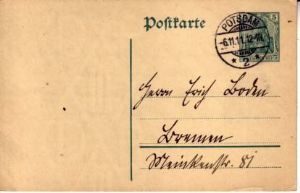 Postkarte
POTSDAM
6.11.11.12-1N.
* 2 *
5
Herrn Erich Boden
Bremen
Meinkenstr. 81